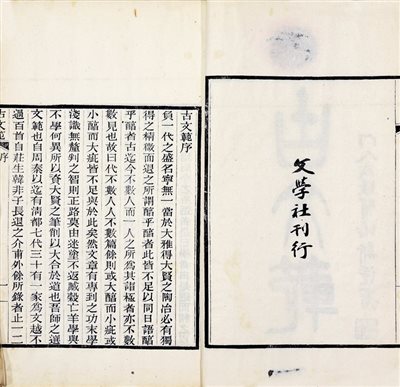 文學社刊行
古文範序
負一代之盛名寧無一當於大雅得大賢之陶冶必有獨
得之精微而退之所謂醕乎醕者此皆不足以同日語醕
乎醕者古迄今不數人而一人之所為其詣極者亦不數
數見也故曰代不數人人不數篇餘則或大醕而小疵或
小醕而大疵皆不足與於此矣然文章有專到之功末學
淺識無釐判之智則正路莫由迷塗不返臧穀亡羊學與
不學何異所以資大賢之筆削以大合於道也吾師之選
文範也自周秦以迄有清都七代三十有一家為文越不
過百首自莊生韓非子長退之介甫外餘所錄者止一二
古文範
序